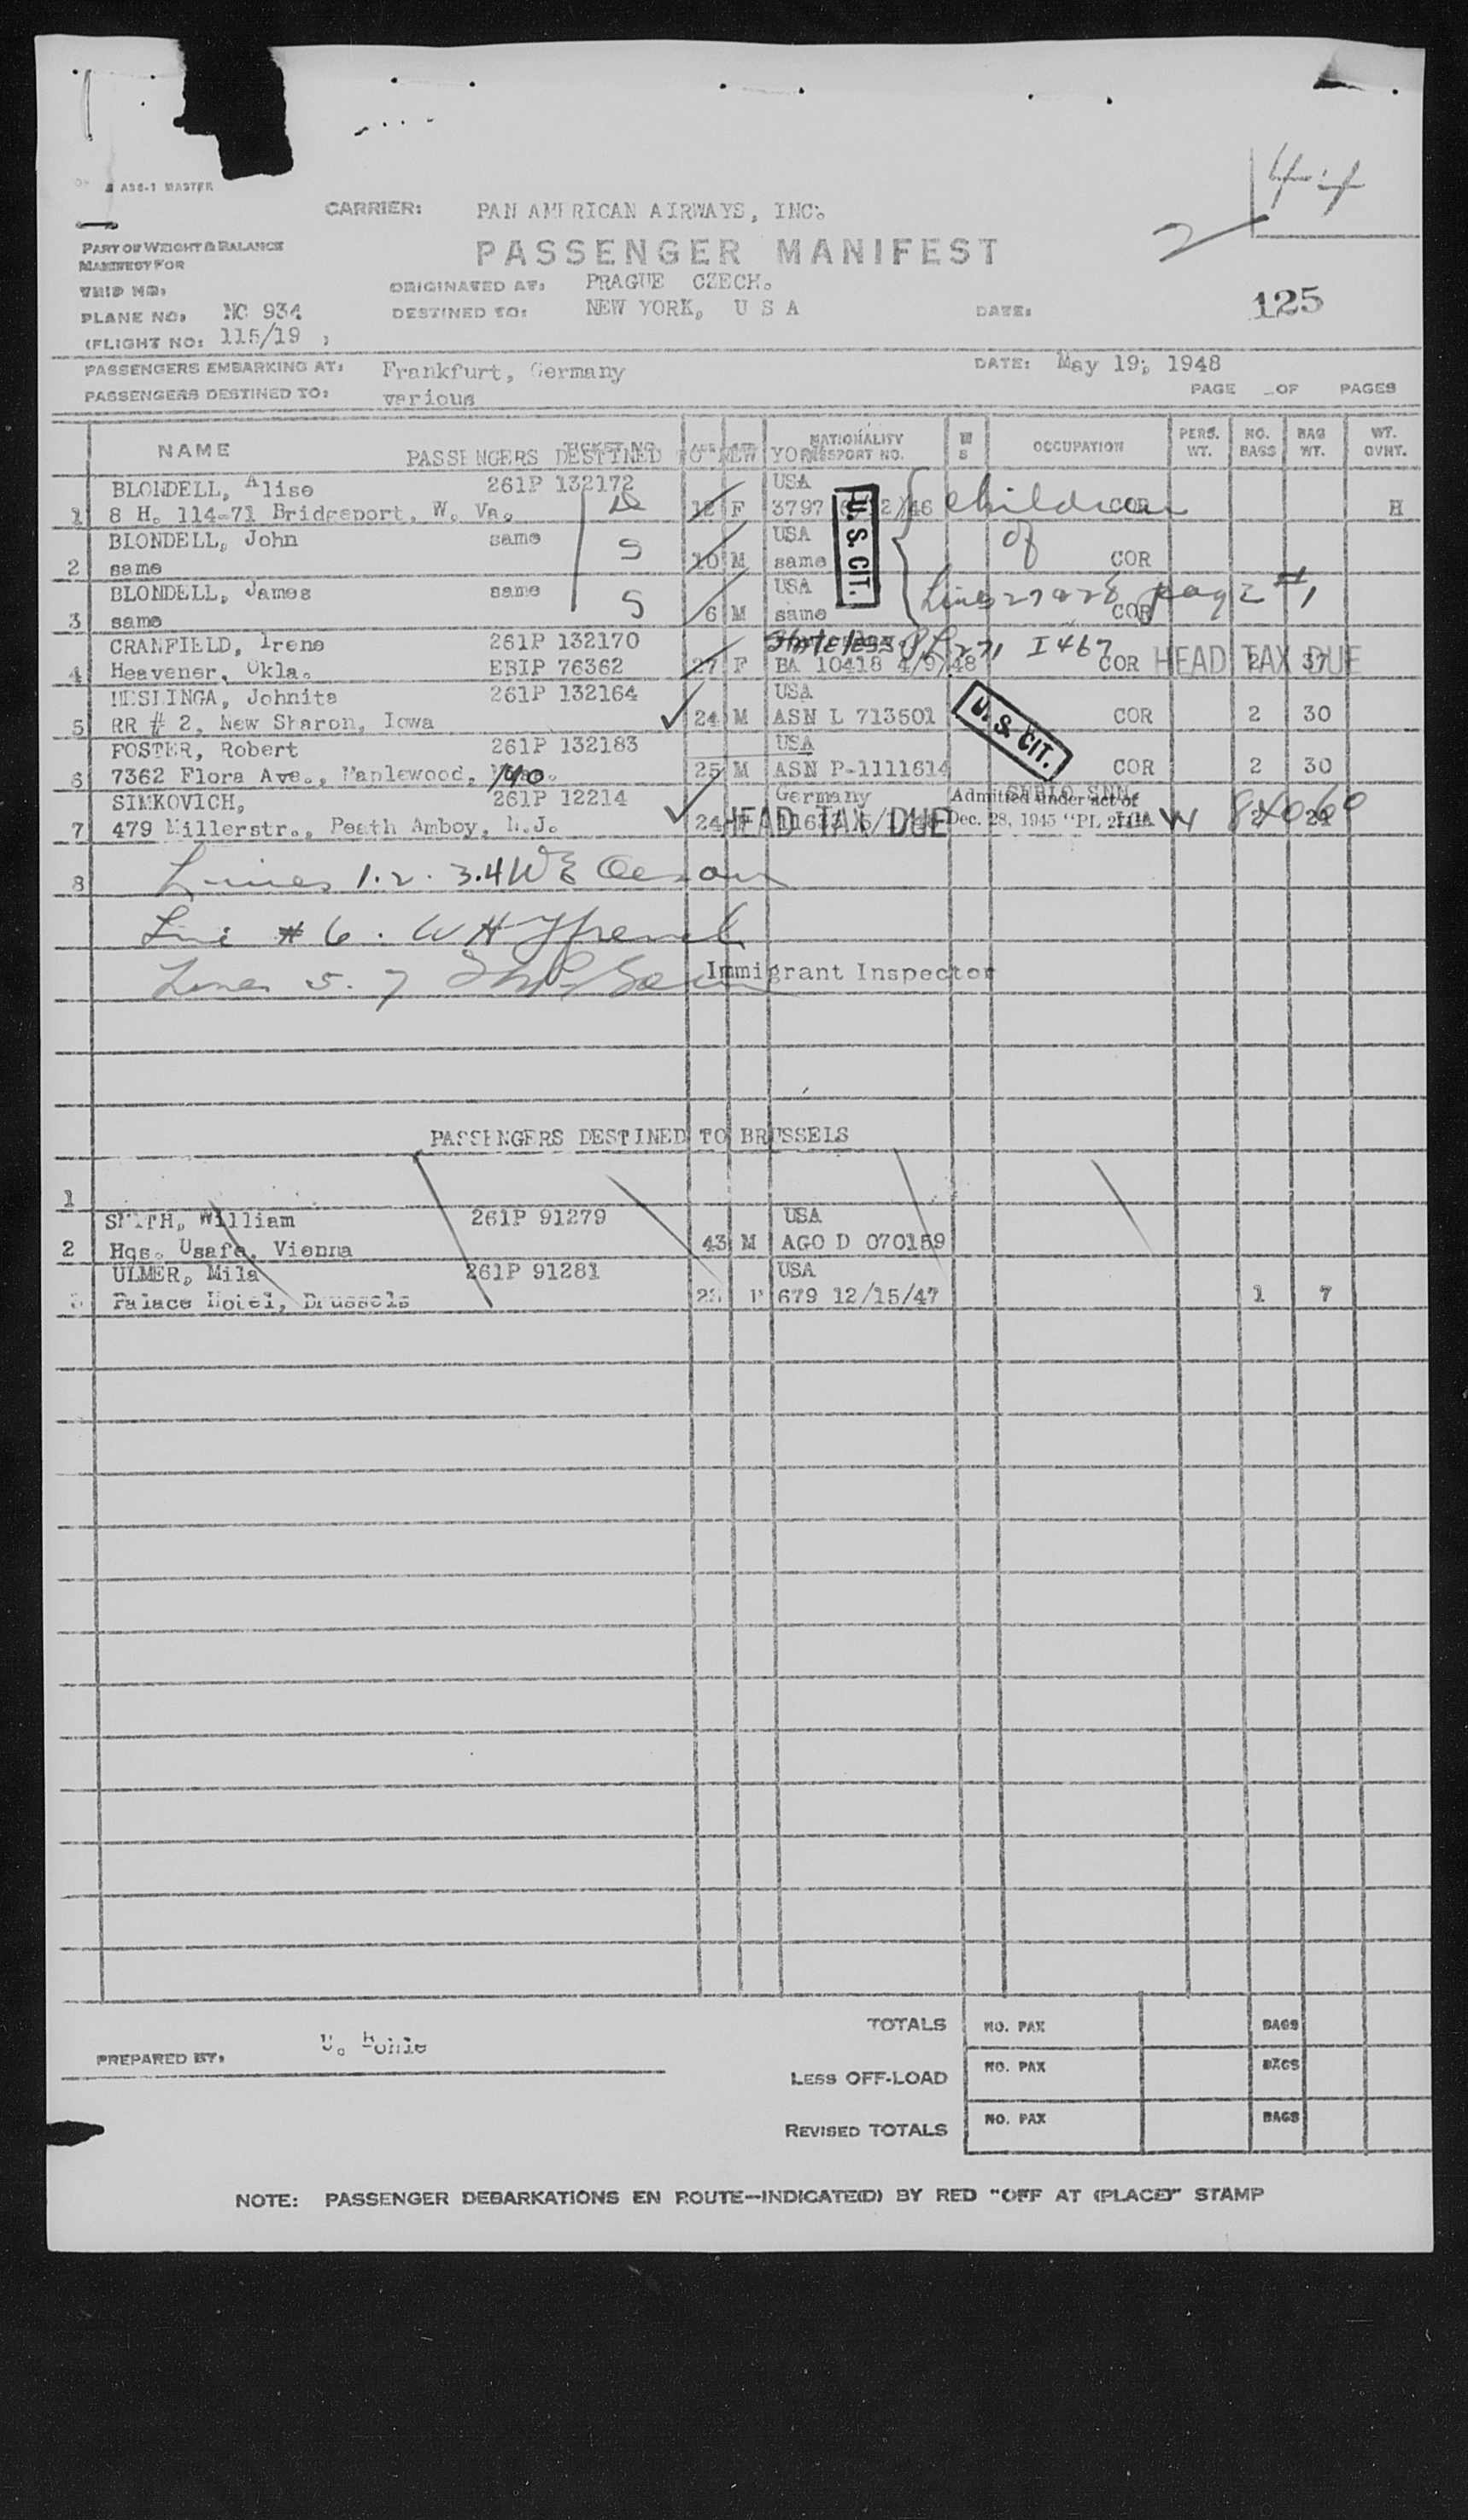 ASS-1 MASTER
4 + 4
2
CARRIER: PAN AMERICAN AIRWAYS, INC.
PART OF WEIGHT & BALANCE
MANIFEST FOR
PASSENGER MANIFEST
SHIP NO:
ORIGINATED AT: PRAGUE CZECH.
PLANE NO: NC 934
DESTINED TO: NEW YORK, U S A
DATE:
125
(FLIGHT NO: 115/19 )
PASSENGERS EMBARKING AT: Frankfurt, Germany
DATE: May 19, 1948
PASSENGERS DESTINED TO: various
PAGE OF PAGES
NAME TICKET NO. NATIONALITY PASSPORT NO. M S OCCUPATION PERS. WT. NO. BAGS BAG WT. WT. OVHT.
PASSENGERS DESTINED TO NEW YORK
BLONDELL, Alise 261P 132172 USA
1 8 H. 114-71 Bridgeport, W. Va. D 12 F 3797 U. S. CIT. children COR H
BLONDELL, John same USA
2 same S 10 M same of COR
BLONDELL, James same USA
3 same S 6 M same Lines 27 & 28 page #1 COR
CRANFIELD, Irene 261P 132170 Stateless PL 271 I 467
4 Heavener, Okla. EBIP 76362 27 F BA 10418 4/9/48 COR HEAD TAX DUE 2 37
HESLINGA, Johnita 261P 132164 USA
5 RR # 2, New Sharon, Iowa 24 M ASN L 713501 U. S. CIT. COR 2 30
FOSTER, Robert 261P 132183 USA
6 7362 Flora Ave., Maplewood, Mo. 25 M ASN P-1111614 COR 2 30
SIMKOVICH, 261P 12214 Germany Admitted under act of
7 479 Millerstr., Peath Amboy, N.J. 24 F HEAD TAX DUE Dec. 28, 1945 "PL 271" 2 24
8 Lines 1. 2. 3. 4 WE
Line # 6. WH
Lines 5. 7
Immigrant Inspector
PASSENGERS DESTINED TO BRUSSELS
1
SMITH, William 261P 91279 USA
2 Hqs. Usafa, Vienna 43 M AGO D 070159
ULMER, Mila 261P 91281 USA
3 Palace Hotel, Brussels 679 12/15/47 1 7
TOTALS NO. PAX BAGS
PREPARED BY:
LESS OFF-LOAD NO. PAX BAGS
REVISED TOTALS NO. PAX BAGS
NOTE: PASSENGER DEBARKATIONS EN ROUTE—INDICATE(D) BY RED "OFF AT (PLACE)" STAMP